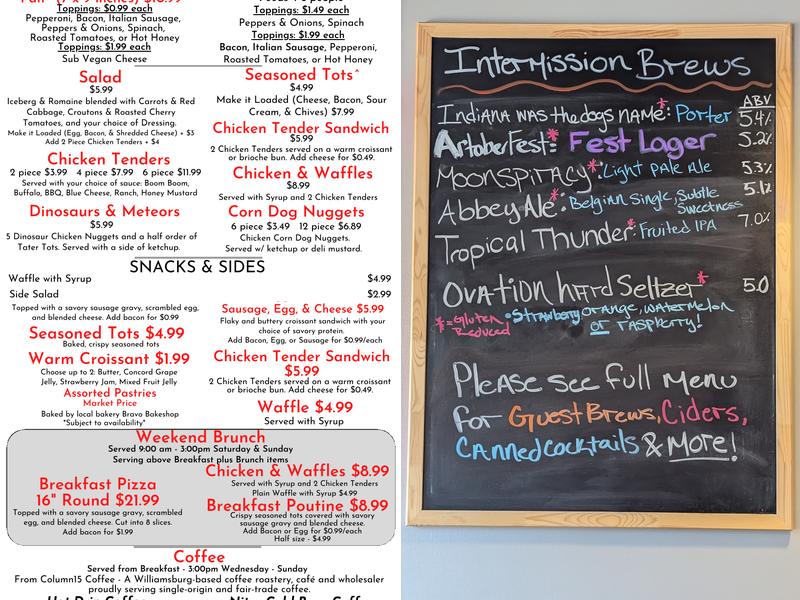 Toppings: $0.99 each
Pepperoni, Bacon, Italian Sausage,
Peppers & Onions, Spinach,
Roasted Tomatoes, or Hot Honey
Toppings: $1.99 each
Sub Vegan Cheese
Salad
$5.99
Iceberg & Romaine blended with Carrots & Red
Cabbage, Croutons & Roasted Cherry
Tomatoes, and your choice of Dressing.
Make it Loaded (Egg, Bacon, & Shredded Cheese) + $3
Add 2 Piece Chicken Tenders + $4
Chicken Tenders
2 piece $3.99 4 piece $7.99 6 piece $11.99
Served with your choice of sauce: Boom Boom,
Buffalo, BBQ, Blue Cheese, Ranch, Honey Mustard
Dinosaurs & Meteors
$5.99
5 Dinosaur Chicken Nuggets and a half order of
Tater Tots. Served with a side of ketchup.
Toppings: $1.49 each
Peppers & Onions, Spinach
Toppings: $1.99 each
Bacon, Italian Sausage, Pepperoni,
Roasted Tomatoes, or Hot Honey
Seasoned Tots^
$4.99
Make it Loaded (Cheese, Bacon, Sour
Cream, & Chives) $7.99
Chicken Tender Sandwich
$5.99
2 Chicken Tenders served on a warm croissant
or brioche bun. Add cheese for $0.49.
Chicken & Waffles
$8.99
Served with Syrup and 2 Chicken Tenders
Corn Dog Nuggets
6 piece $3.49 12 piece $6.89
Chicken Corn Dog Nuggets.
Served w/ ketchup or deli mustard.
SNACKS & SIDES
Waffle with Syrup $4.99
Side Salad $2.99
Topped with a savory sausage gravy, scrambled egg,
and blended cheese. Add bacon for $0.99
Seasoned Tots $4.99
Baked, crispy seasoned tots
Warm Croissant $1.99
Choose up to 2: Butter, Concord Grape
Jelly, Strawberry Jam, Mixed Fruit Jelly
Assorted Pastries
Market Price
Baked by local bakery Bravo Bakeshop
*Subject to availability*
Sausage, Egg, & Cheese $5.99
Flaky and buttery croissant sandwich with your
choice of savory protein.
Add Bacon, Egg, or Sausage for $0.99/each
Chicken Tender Sandwich
$5.99
2 Chicken Tenders served on a warm croissant
or brioche bun. Add cheese for $0.49.
Waffle $4.99
Served with Syrup
Weekend Brunch
Served 9:00 am - 3:00pm Saturday & Sunday
Serving above Breakfast plus Brunch items
Breakfast Pizza
16" Round $21.99
Topped with a savory sausage gravy, scrambled
egg, and blended cheese. Cut into 8 slices.
Add bacon for $1.99
Chicken & Waffles $8.99
Served with Syrup and 2 Chicken Tenders
Plain Waffle with Syrup $4.99
Breakfast Poutine $8.99
Crispy seasoned tots covered with savory
sausage gravy and blended cheese.
Add Bacon or Egg for $0.99/each
Half size - $4.99
Coffee
Served from Breakfast - 3:00pm Wednesday - Sunday
From Column15 Coffee - A Williamsburg-based coffee roastery, café and wholesaler
proudly serving single-origin and fair-trade coffee.
Intermission Brews
ABV
Indiana was the dogs name*: Porter 5.4%
Artoberfest*: Fest Lager 5.2%
Moonspiracy*: Light Pale Ale 5.3%
Abbey Ale*: Belgian Single, Subtle Sweetness 5.1%
Tropical Thunder*: Fruited IPA 7.0%
Ovation hard Seltzer* 5.0
*=Gluten Reduced
•Strawberry orange, watermelon
or raspberry!
Please see full menu
for Guest Brews, Ciders,
Canned cocktails & More!